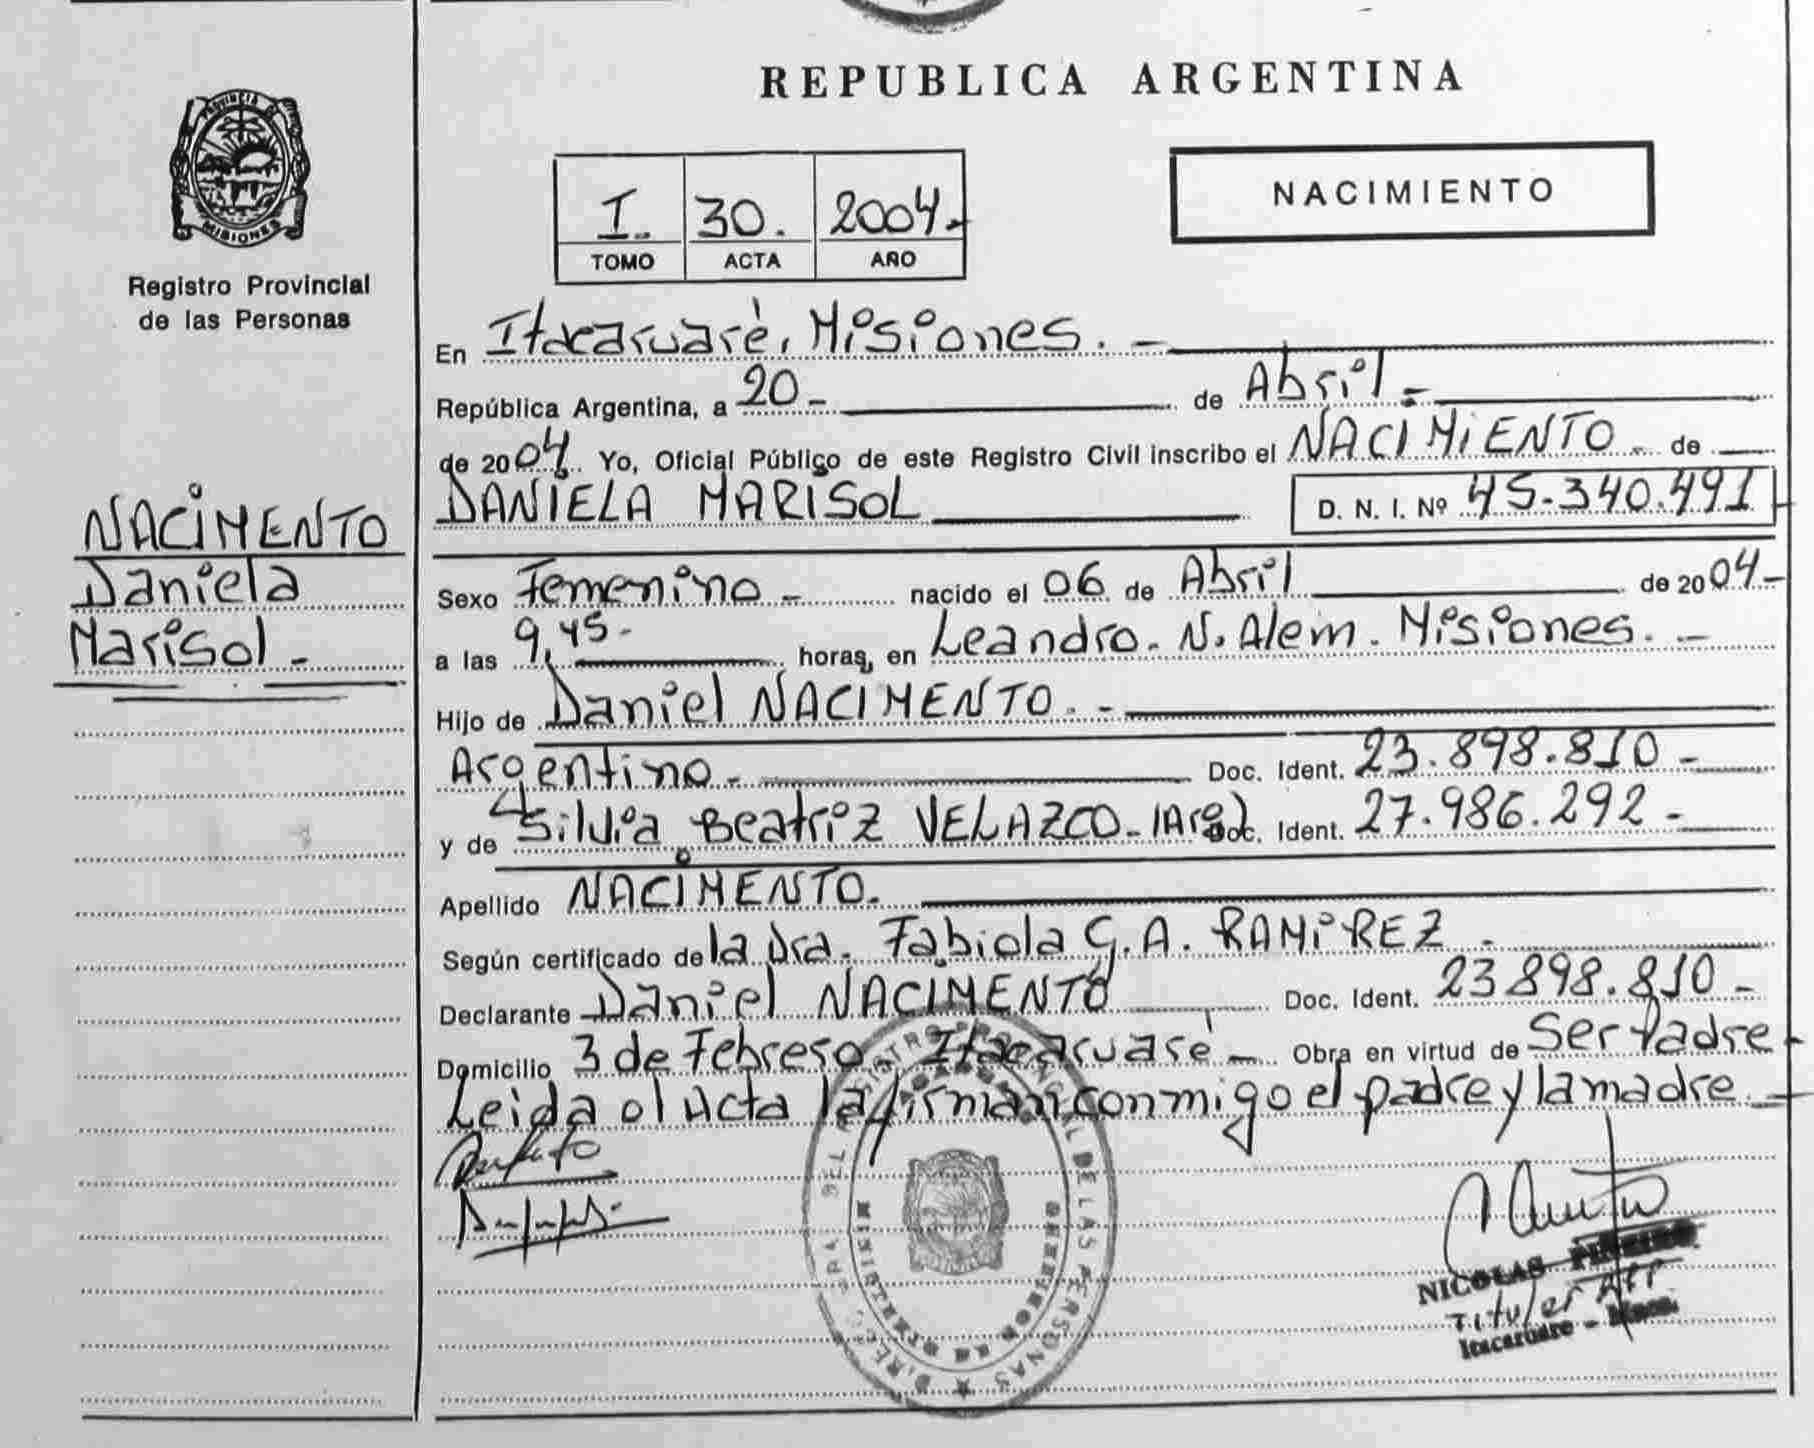 PROVINCIA DE
MISIONES
Registro Provincial
de las Personas
NACIMENTO
Daniela
Marisol -
REPUBLICA ARGENTINA
I. 30. 2004.-
TOMO ACTA AÑO
NACIMIENTO
En Itacaruaré, Misiones. -
República Argentina, a 20 - de Abril -
de 2004 Yo, Oficial Público de este Registro Civil inscribo el NACIMIENTO - de
DANIELA MARISOL D. N. I. Nº 45.340.491
Sexo Femenino - nacido el 06 de Abril de 2004-
a las 9,45- horas, en Leandro. N. Alem. Misiones. -
Hijo de Daniel NACIMENTO. -
Argentino - Doc. Ident. 23.898.810 -
y de Silvia Beatriz VELAZCO - (Arg) Doc. Ident. 27.986.292 -
Apellido NACIMENTO.
Según certificado de la Dra. Fabiola G. A. RAMIREZ -
Declarante Daniel NACIMENTO Doc. Ident. 23.898.810 -
Domicilio 3 de Febrero - Itacaruaré - Obra en virtud de Ser Padre -
Leida el Acta la firman conmigo el padre y la madre. -
REGISTRO PROVINCIAL DE LAS PERSONAS
MINISTERIO DE GOBIERNO
NICOLAS PIÑEIRO
Titular
Itacaruare - Mnes.